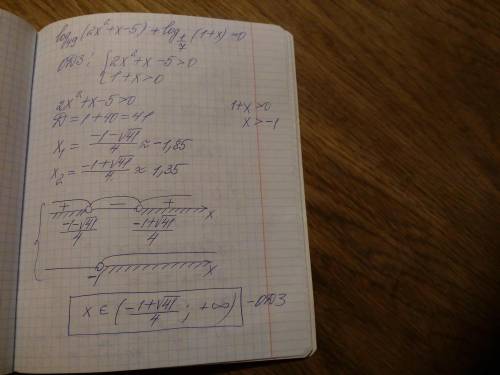 log₄₉(2x²+x-5)+log_{1/7}(1+x)=0
ОДЗ: {2x²+x-5>0
{1+x>0
2x²+x-5>0 1+x>0
D=1+40=41 x>-1
x₁ = (-1-√41)/4 ≈ -1,85
x₂ = (-1+√41)/4 ≈ 1,35
+ - + x
(-1-√41)/4 (-1+√41)/4
-1 x
x ∈ ((-1+√41)/4; +∞) - ОДЗ